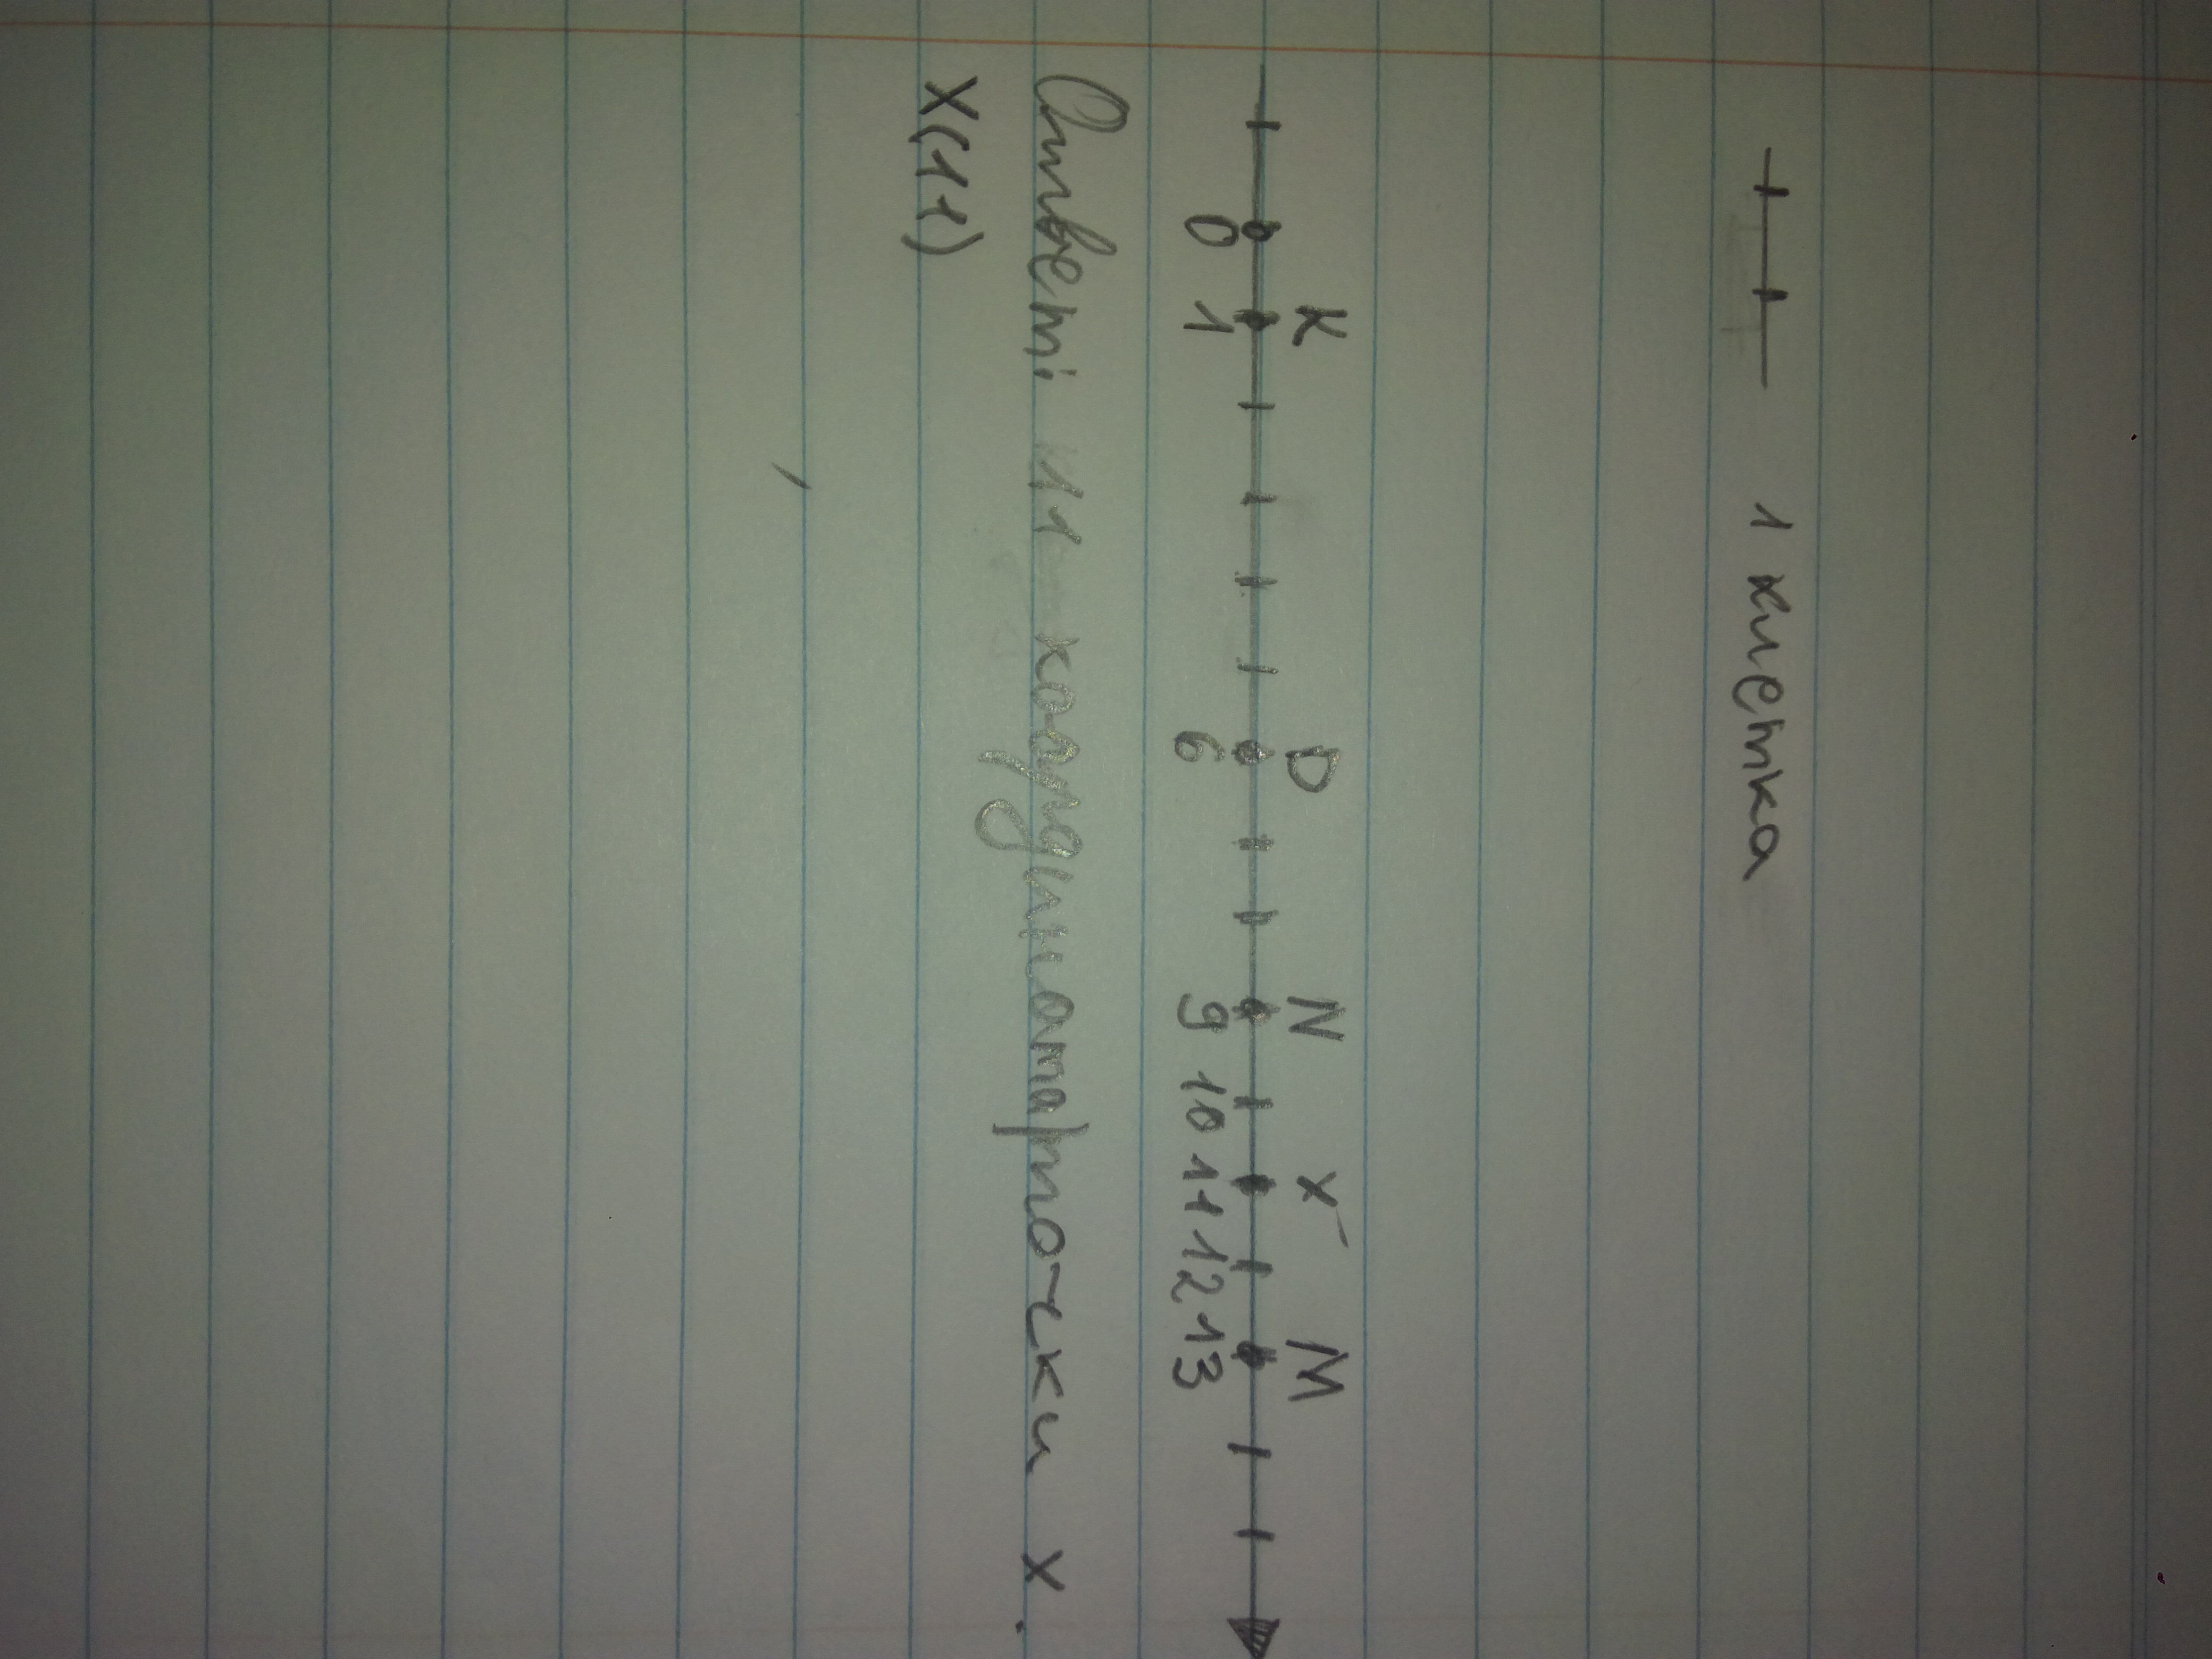 1 клетка
K D N X M
0 1 6 9 10 11 12 13
Ответ: 11 - коардината точки X.
X(11)